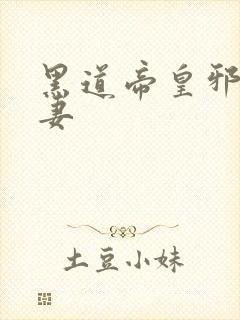 黑道帝皇邪
妻
土豆小妹